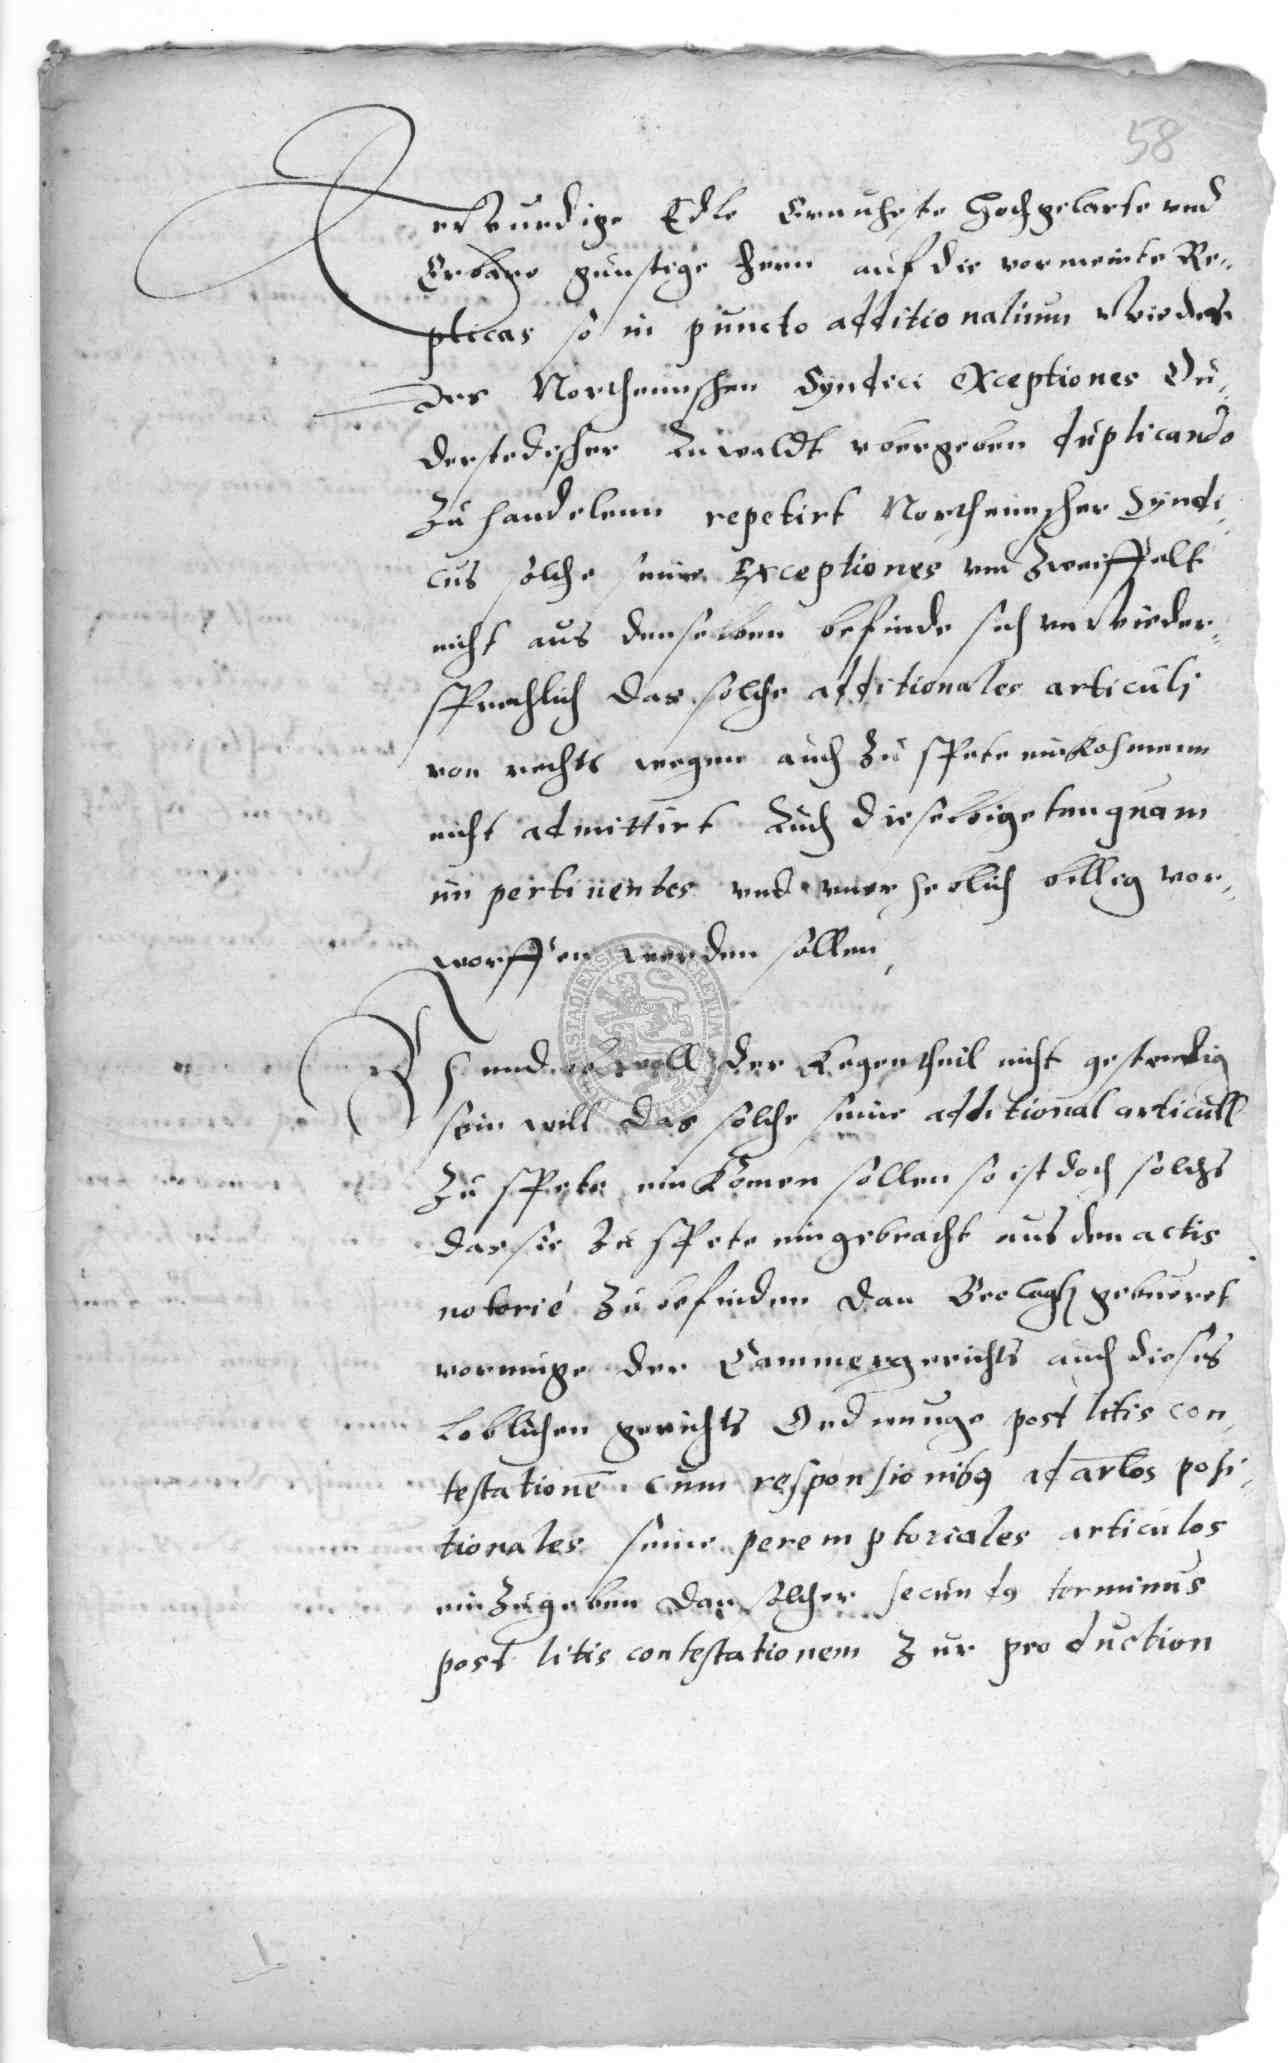 58
Erwurdige Edle Ernuheste Hochgelarte vnd
Erbare gunstige hern auf die vormeinte Re-
plicas so in puncto additionalium wieder
des Northeimschen Syndici exceptiones Du-
derstedischer Anwaldt vbergeben duplicando
Zu handelenn repetirt Northeimscher Syndi-
cus solche seine Exceptiones vnd Zweiffelt
nicht aus denselben befinde sich vnwieder-
sprechlich das solche additionales articulj
von rechts wegenn auch zu spete einkohmenn
nicht admittirt Auch dieselbige tanquam
impertinentes vnd vnerheblich billig vor-
worffen werden sollen,
Vnd obwoll der Kegentheil nicht gestendig
sein will das solche seine additional articull
Zu spete einkomen sollen so ist doch solchs
das sie zu spete eingebracht aus den actis
notorie zu befinden dan Beclagtē gebueret
vormuge der Cammergerichts auch dieses
Loblichen gerichts Ordnunge post litis con-
testationē cum responsionibȝ ad arłos posi-
tionales seine peremptoriales articulos
einzugeben das solcher secundȝ terminus
post litis contestationem Zur production